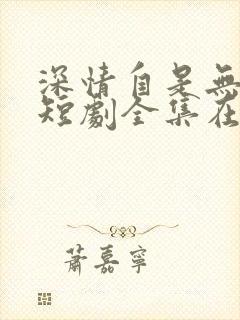 深情自是無
短劇全集在
蕭嘉寧